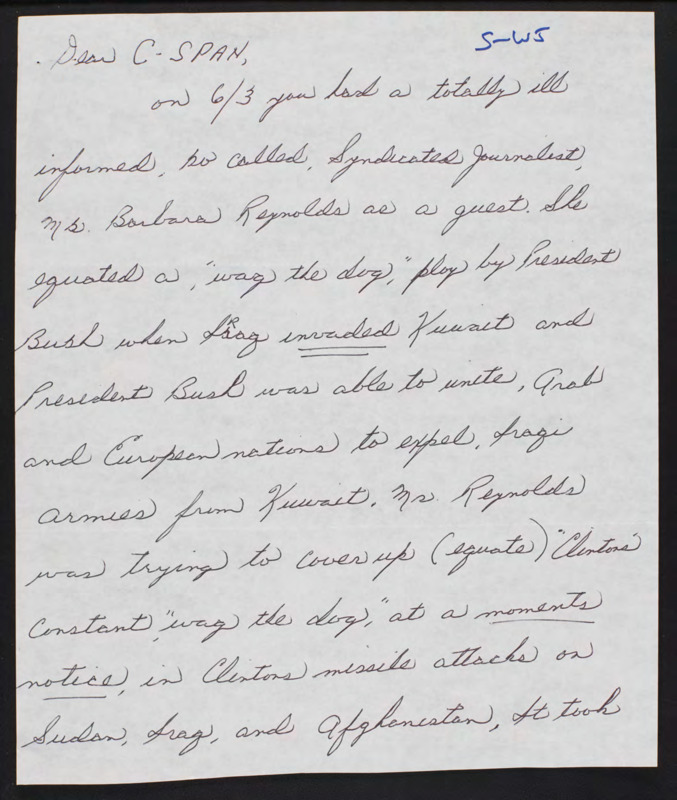 S-W5
Dear C-SPAN,
on 6/3 you had a totally ill
informed, so called, Syndicated Journalist,
Ms. Barbara Reynolds as a guest. She
equated a, "wag the dog," ploy by President
Bush when Iraq invaded Kuwait and
President Bush was able to unite, Arab
and European nations to expel, Iraqi
armies from Kuwait. Ms. Reynolds
was trying to cover up (equate) "Clintons"
constant, "wag the dog," at a moments
notice, in Clintons missile attacks on
Sudan, Iraq, and Afghanistan, It took